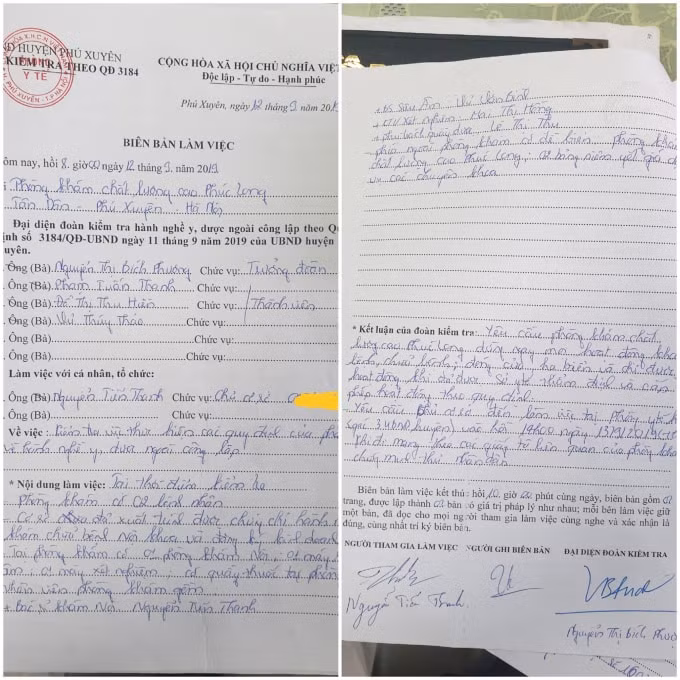 ND HUYỆN PHÚ XUYÊN
KIỂM TRA THEO QĐ 3184
CỘNG HÒA XÃ HỘI CHỦ NGHĨA VIỆT
Độc lập - Tự do - Hạnh phúc
Y TẾ
Phú Xuyên, ngày 12 tháng 9 năm 201
BIÊN BẢN LÀM VIỆC
ôm nay, hồi 8 giờ 00 ngày 12 tháng 9 năm 2019
Phòng khám chất lượng cao Phúc Long
Tân Dân - Phú Xuyên - Hà Nội
Đại diện đoàn kiểm tra hành nghề y, dược ngoài công lập theo Q
ịnh số 3184/QĐ-UBND ngày 11 tháng 9 năm 2019 của UBND huyện
uyên.
Ông (Bà) Nguyễn Thị Bích Phượng Chức vụ: Trưởng đoàn
Ông (Bà) Phạm Tuấn Thanh Chức vụ:
Ông (Bà) Đỗ Thị Thu Hiền Chức vụ: Thành viên
Ông (Bà) Vũ Thúy Thảo Chức vụ:
Ông (Bà) Chức vụ:
Ông (Bà) Chức vụ:
Làm việc với cá nhân, tổ chức:
Ông (Bà) Nguyễn Tiến Thanh Chức vụ: Chủ cơ sở
Ông (Bà) Chức vụ:
Về việc: Kiểm tra việc thực hiện các quy định của phá
về hành nghề y, dược ngoài công lập
* Nội dung làm việc: Tại thời điểm kiểm tra
phòng khám có 02 bệnh nhân
Cơ sở đã xuất trình được chứng chỉ hành
khám chữa bệnh Nội khoa và đăng ký kinh doanh
Tại phòng khám có 01 phòng khám Nội; 01 máy
âm; 01 máy xét nghiệm; có quầy thuốc tại phòn
Nhân viên phòng khám gồm
+ Bác sĩ khám Nội Nguyễn Tiến Thanh
+ BS Siêu Âm: Vũ Văn Bình
+ KTV xét nghiệm Mai Thị Hồng
+ phụ trách quầy dược Lê Thị Thu
phía ngoài phòng khám có đề biển phòng khám
chất lượng cao Phúc Long; 01 bảng niêm yết giá
và các chuyên khoa
* Kết luận của đoàn kiểm tra: Yêu cầu phòng khám chất
lượng cao Phúc Long dừng ngay mọi hoạt động khá
bệnh, chữa bệnh; đóng cửa, hạ biển và chỉ được
hoạt động khi đã được Sở y tế thẩm định và cấp
phép hoạt động theo quy định.
Yêu cầu chủ cơ sở đến làm việc tại phòng y tế
UBND huyện) vào hồi 14h00 ngày 13/9/2019
Khi đi mang theo các giấy tờ liên quan của phòng khá
chứng minh thư nhân dân
Biên bản làm việc kết thúc hồi giờ phút cùng ngày, biên bản gồm 02
trang, được lập thành 02 bản có giá trị pháp lý như nhau; mỗi bên làm việc giữ
một bản, đã đọc cho mọi người tham gia làm việc cùng nghe và xác nhận là
đúng, cùng nhất trí ký biên bản.
NGƯỜI THAM GIA LÀM VIỆC NGƯỜI GHI BIÊN BẢN ĐẠI DIỆN ĐOÀN KIỂM TRA
Nguyễn Tiến Thanh
Nguyễn Thị Bích Phượ